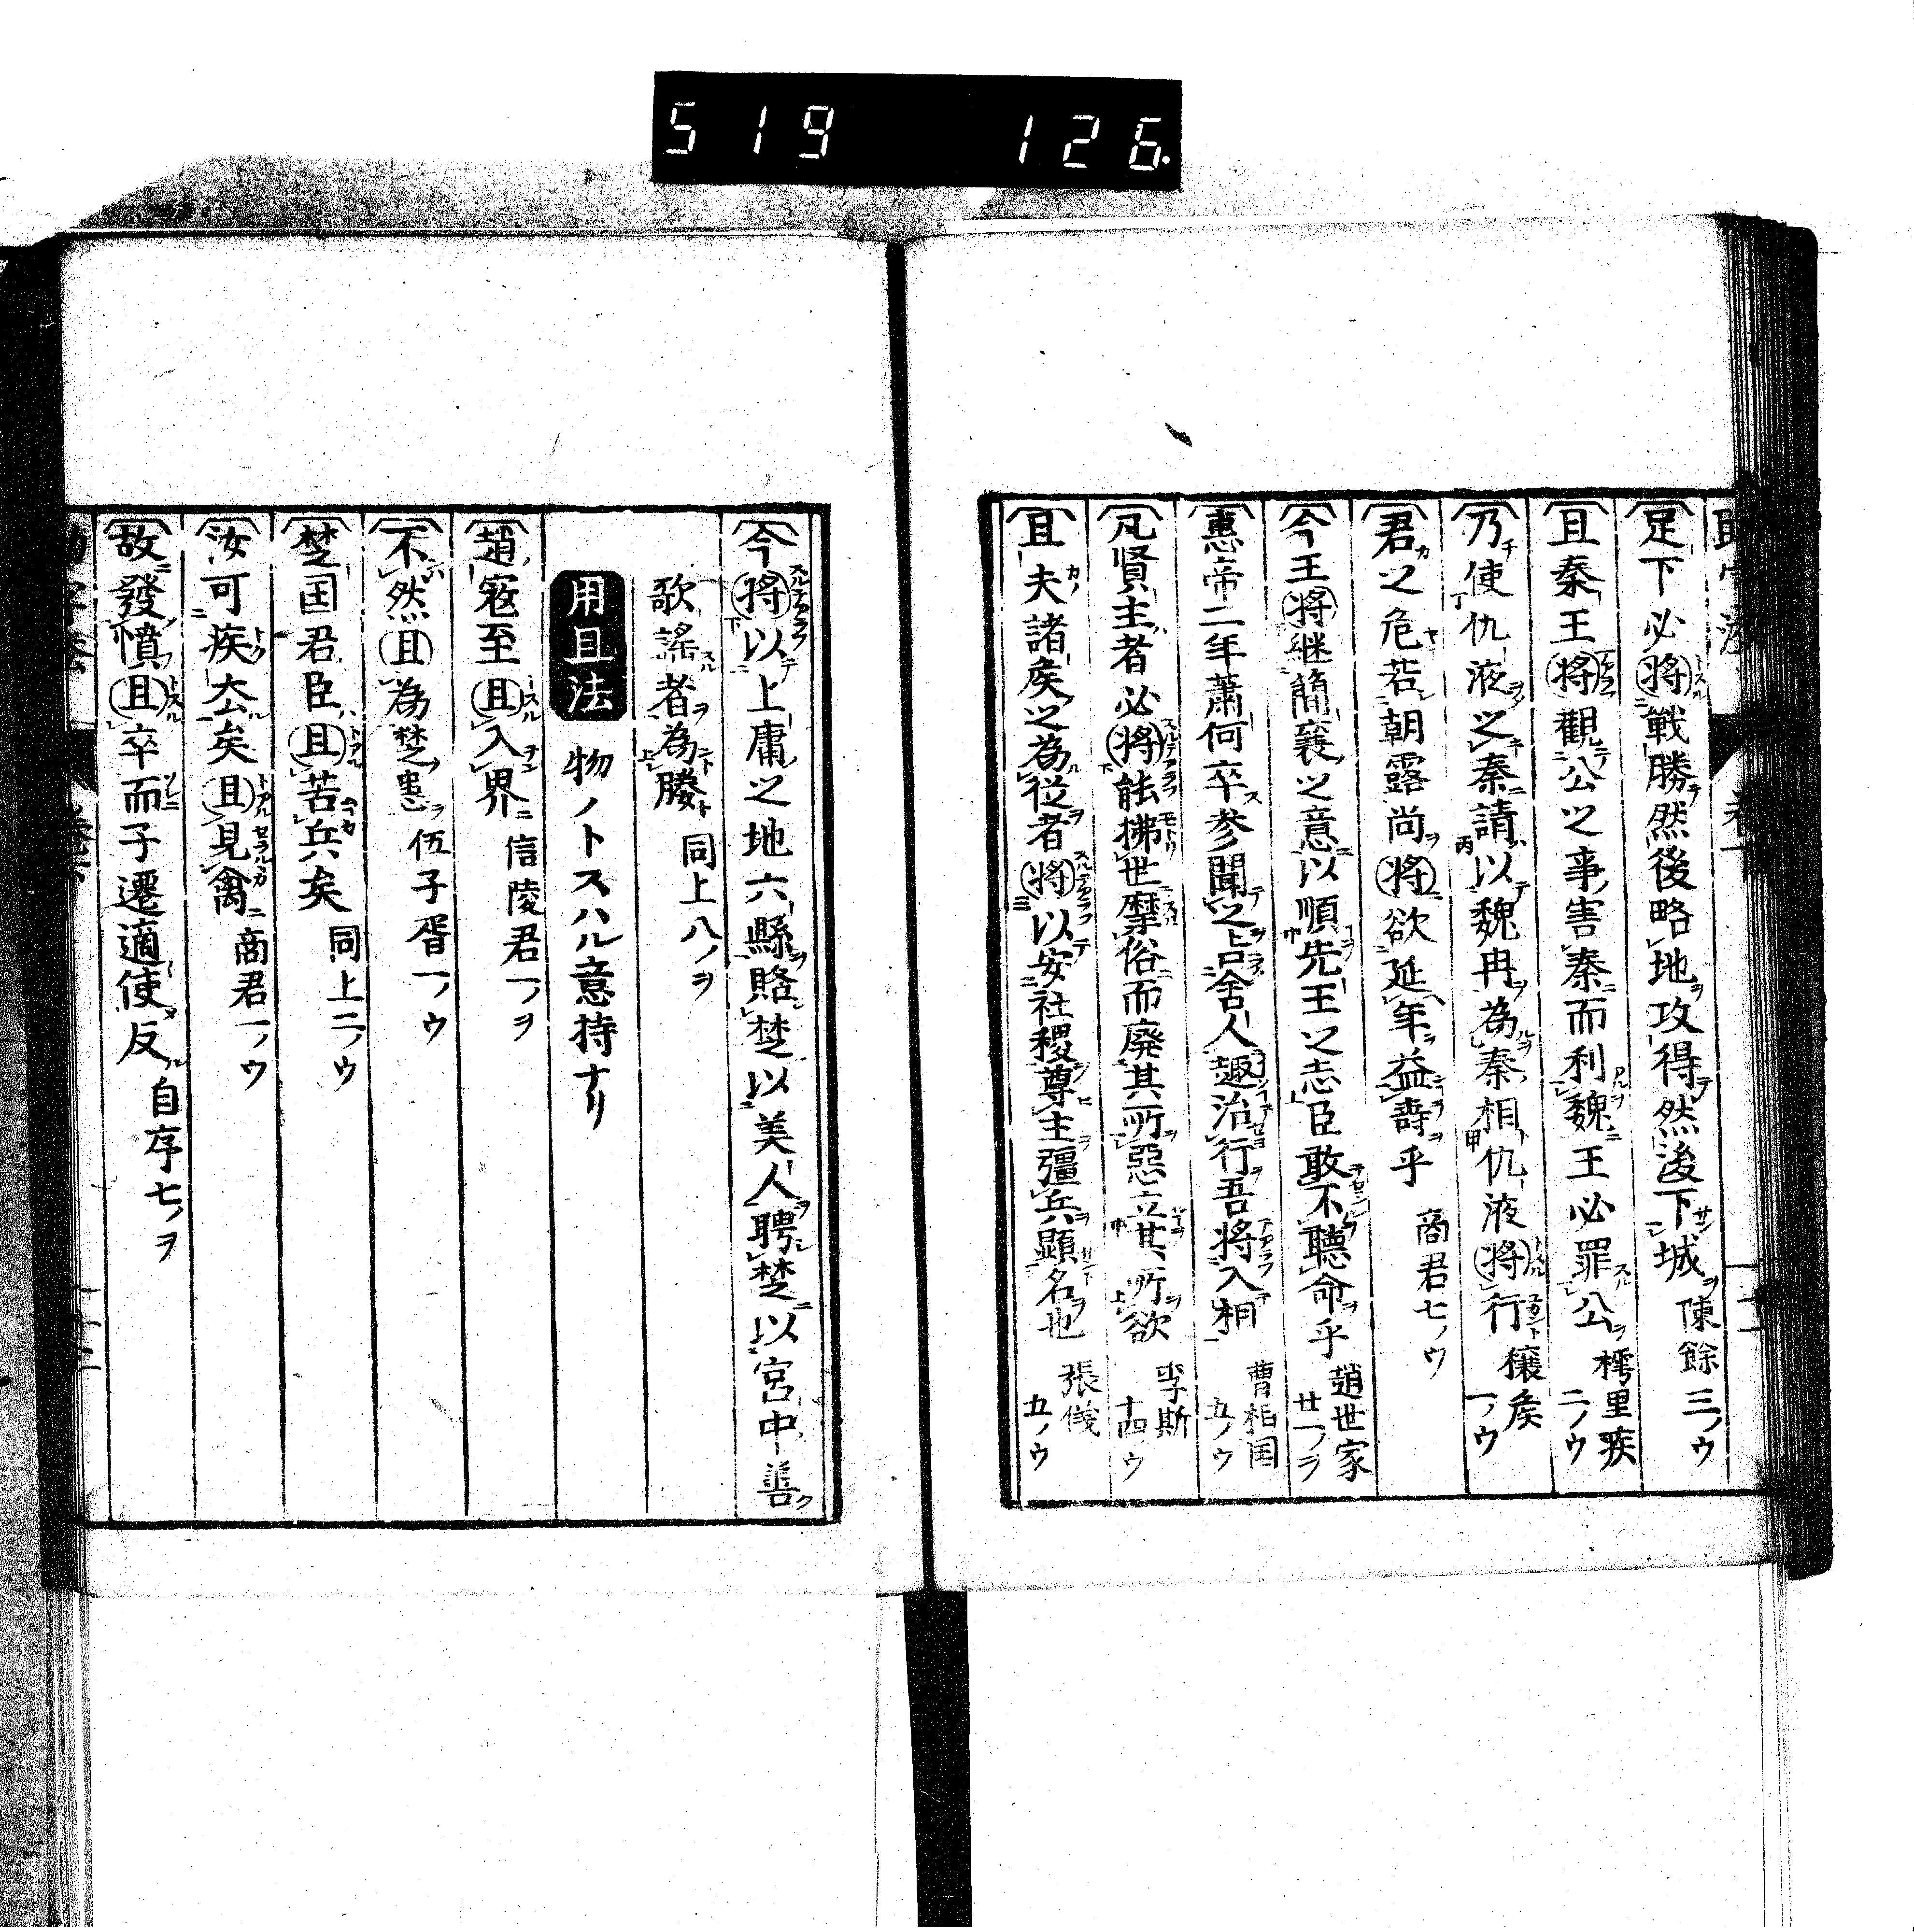 519 126
足下必將戦勝然後略地攻得然後下城 陳餘三ノウ
且秦王將觀公之事害秦而利魏王必罪公 樗里疾二ノウ
乃使仇液之秦請以魏冉為秦相仇液將行 穰矦一ノウ
君之危若朝露尚將欲延年益壽乎 商君七ノウ
今王將継簡襄之意以順先王之志臣敢不聴命乎 趙世家廿一ノヲ
惠帝二年蕭何卒参聞之告舍人趣治行吾將入相 曹相国五ノウ
凡賢主者必將能拂世摩俗而廃其所惡立其所欲 李斯十四ノウ
且夫諸矦之為從者將以安社稷尊主彊兵顯名也 張儀五ノウ
今將以上庸之地六縣賂楚以美人聘楚以宮中善
歌謠者為媵 同上八ノヲ
用且法 物ノトスハル意持ナリ
趙寇至且入界 信陵君一ノヲ
不然且為楚患 伍子胥一ノウ
楚国君臣且苦兵矣 同上二ノウ
汝可疾去矣且見禽 商君一ノウ
故發憤且卒而子遷適使反 自序七ノヲ